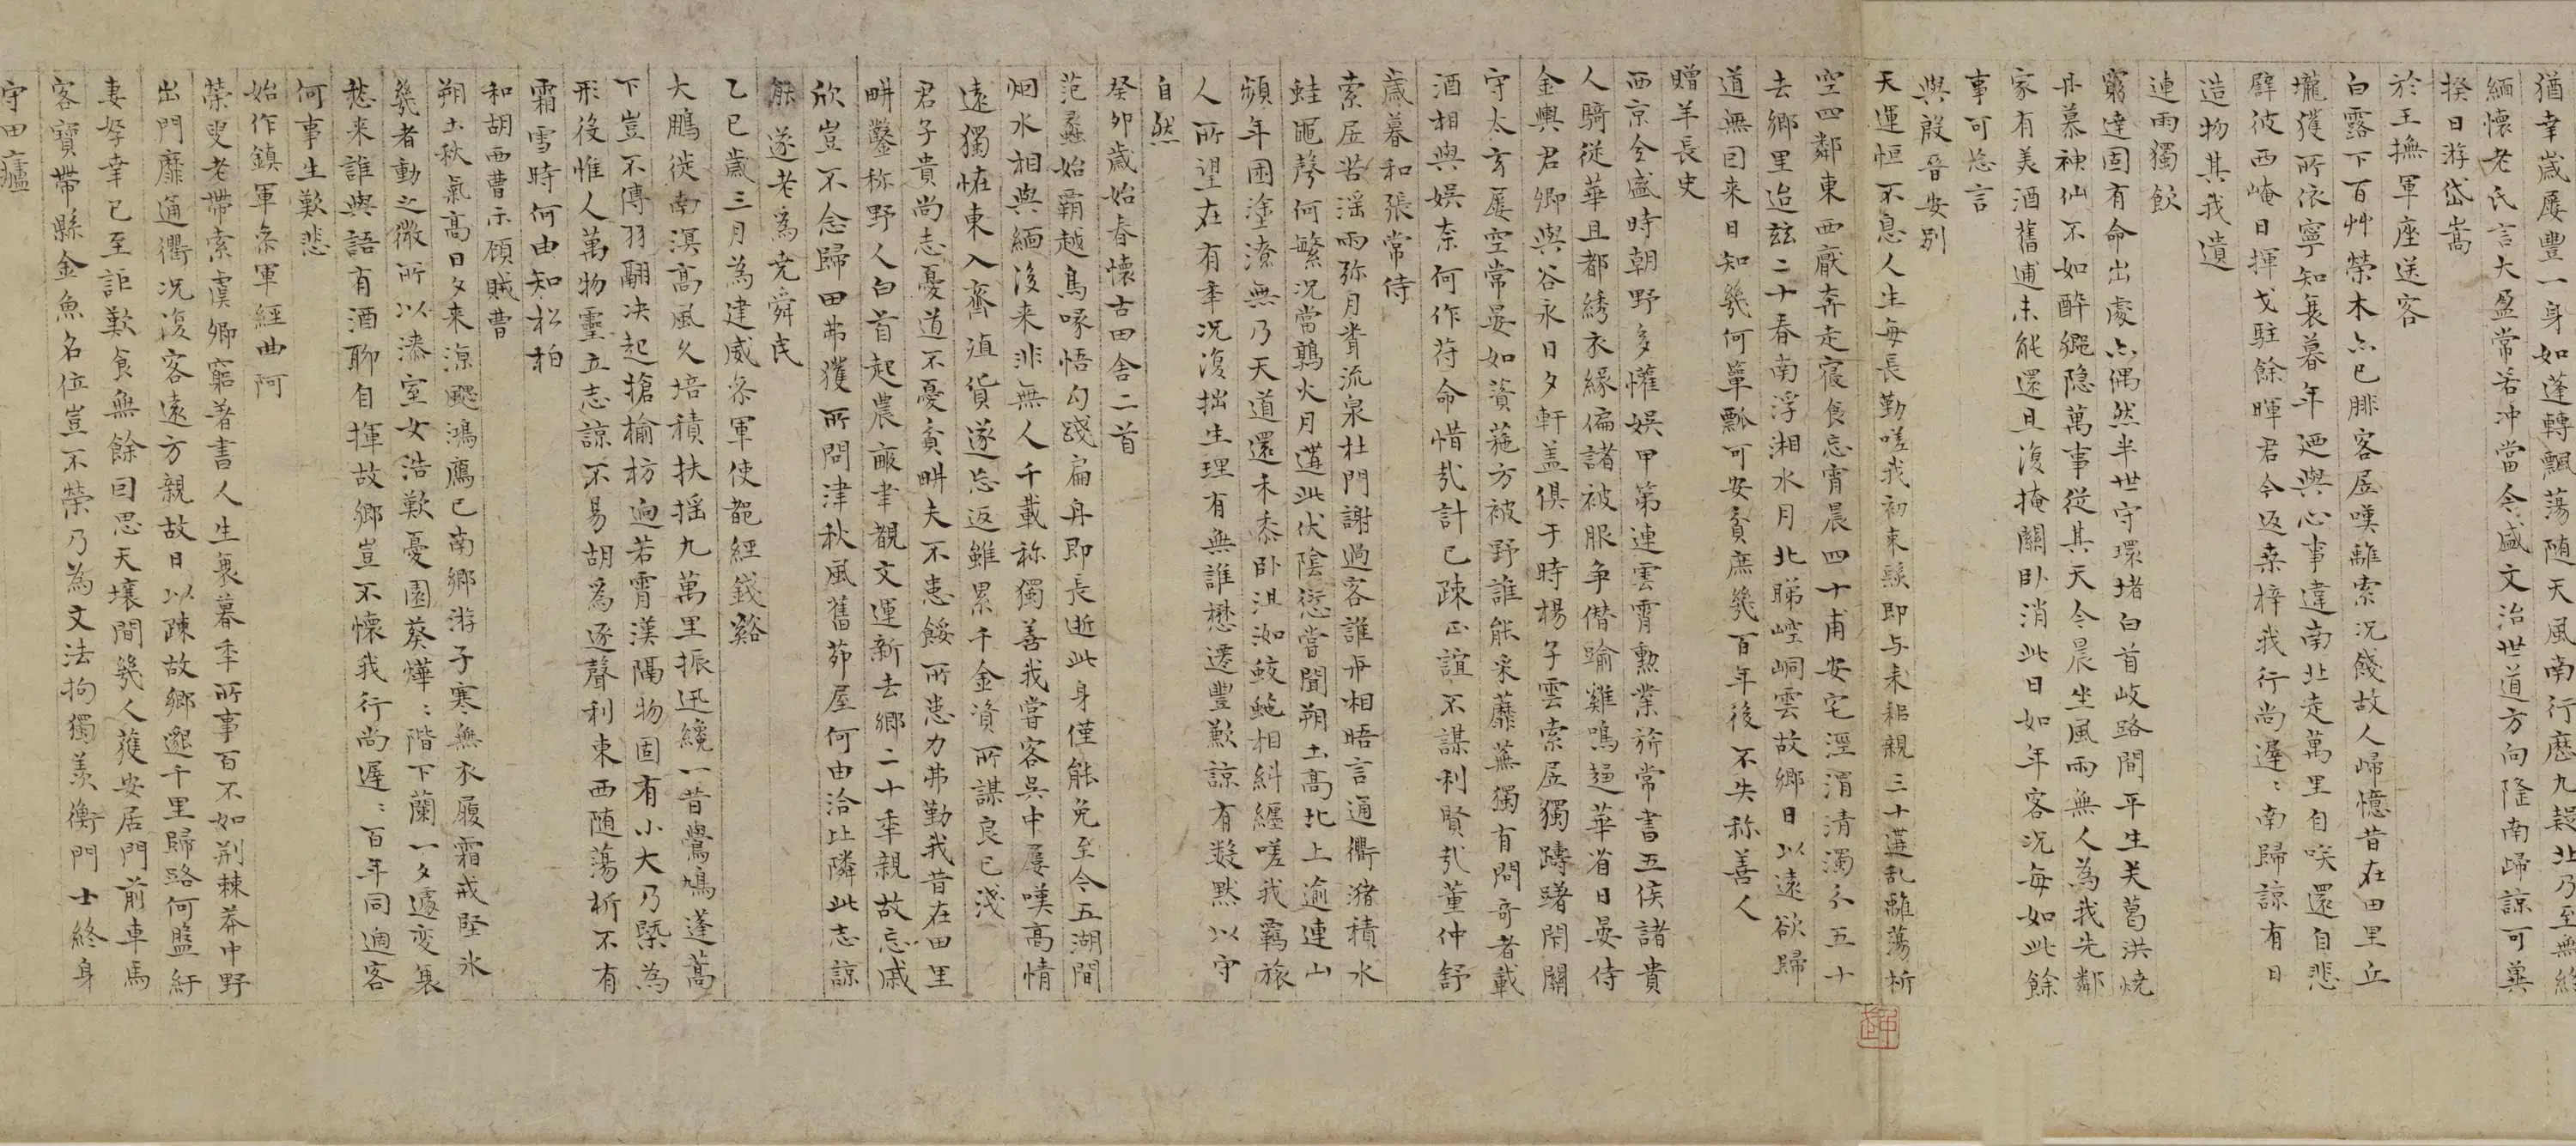 猶幸歲屢豐一身如蓬轉飄蕩随天風南行歷九疑北乃至無終
緬懷老氏言大盈常若冲當今盛文治世道方向隆南歸諒可冀
揆日游岱嵩
於王撫軍座送客
白露下百艸榮木亦已腓客居嘆離索况餞故人歸憶昔在田里丘
壠獲所依寧知衰暮年廼與心事違南北走萬里自咲還自悲
羣彼西崦日揮戈駐餘暉君今返桒梓我行尚遲〻南歸諒有日
造物其我遺
連雨獨飲
窮達固有命出處亦偶然半世守環堵白首岐路間平生关葛洪燒
丹慕神仙不如醉鄉隐萬事從其天今晨坐風雨無人為我先鄰
家有美酒舊逋未能還且復掩關卧消此日如年客况每如此餘
事可忘言
與殷晉安別
天運恒不息人生每長勤嗟我初束髮即与耒耜親三十遘乱離蕩析
空四鄰東西厭奔走寢食忘宵晨四十甫安宅涇渭清濁分五十
去鄉里迨玆二十春南浮湘水月北睇崆峒雲故鄉日以遠欲歸
道無因来日知㡬何箪瓢可安貧庶㡬百年後不失称善人
贈羊長史
西京全盛時朝野多懽娯甲第連雲霄勲業旂常書五侯諸貴
人騎從華且都綉衣緣偏諸被服争僣踰雞鳴趨華省日晏侍
金輿君卿與谷永日夕軒盖俱于時楊子雲索居獨躊躇閑關
守太玄屢空常晏如蒺蔾方被野誰能采蘼蕪獨有問奇者載
酒相與娯奈何作苻命惜㢤計已疎正誼不謀利賢㢤董仲舒
歲暮和張常侍
索居苦滛雨弥月賫流泉杜門謝過客誰毋相晤言通衢潴積水
蛙黽聲何繁况當鶉火月遘此伏陰愆嘗聞朔土高北上逾連山
頻年困塗潦無乃天道還禾黍卧沮洳鮫鮑相糾纏嗟我羁旅
人所望在有秊况復拙生理有無誰懋遷豐歉諒有数默以守
自然
癸夘歲始春懷古田舍二首
范蠡始霸越鳥喙悟勾踐扁舟即長逝此身僅能免至今五湖間
烟水相與緬後来非無人千載称獨善我嘗客吳中屢嘆高情
遠獨怪東入齊殖貨遂忘返雖累千金資所謀良已淺
君子貴尚志憂道不憂貧畊夫不患餒所患力弗勤我昔在田里
畊鑿称野人白首起農畝聿覩文運新去鄉二十秊親故忘戚
欣豈不念歸田弗獲所問津秋風舊茆屋何由洽比隣此志諒
能遂老為尭舜民
乙巳歲三月為建威叅軍使都經錢谿
大鵬徙南溟髙風久培積扶摇九萬里振迅纔一昔鷽鳩蓬蒿
下豈不傳羽翮决起搶榆枋逈若霄漢隔物固有小大乃槩為
形役惟人萬物靈立志諒不易胡為逐聲利東西随蕩析不有
霜雪時何由知松栢
和胡西曹示顧賊曹
朔土秋氣髙日夕来涼颸鴻鴈已南鄉游子寒無衣履霜戒堅氷
㡬者動之微所以漆室女浩歎憂園葵燁〻階下蘭一夕遽变衰
愁来誰與語有酒聊自揮故鄉豈不懷我行尚遲〻百年同過客
何事生歎悲
始作鎮軍叅軍經曲阿
榮叟老帶索虞卿窮著書人生衰暮秊所事百不如荆棘莽中野
出門靡通衢况復客遠方親故日以疎故鄉邈千里歸路何盤紆
妻孥幸已至詎歎食無餘因思天壤間㡬人蓷安居門前車馬
客寶帶縣金魚名位豈不榮乃為文法拘獨羡衡門士終身
守田廬